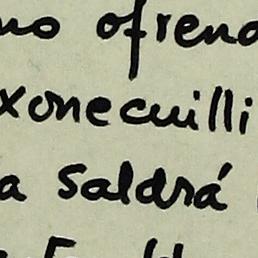 no ofrend
xonecuilli
a saldrá